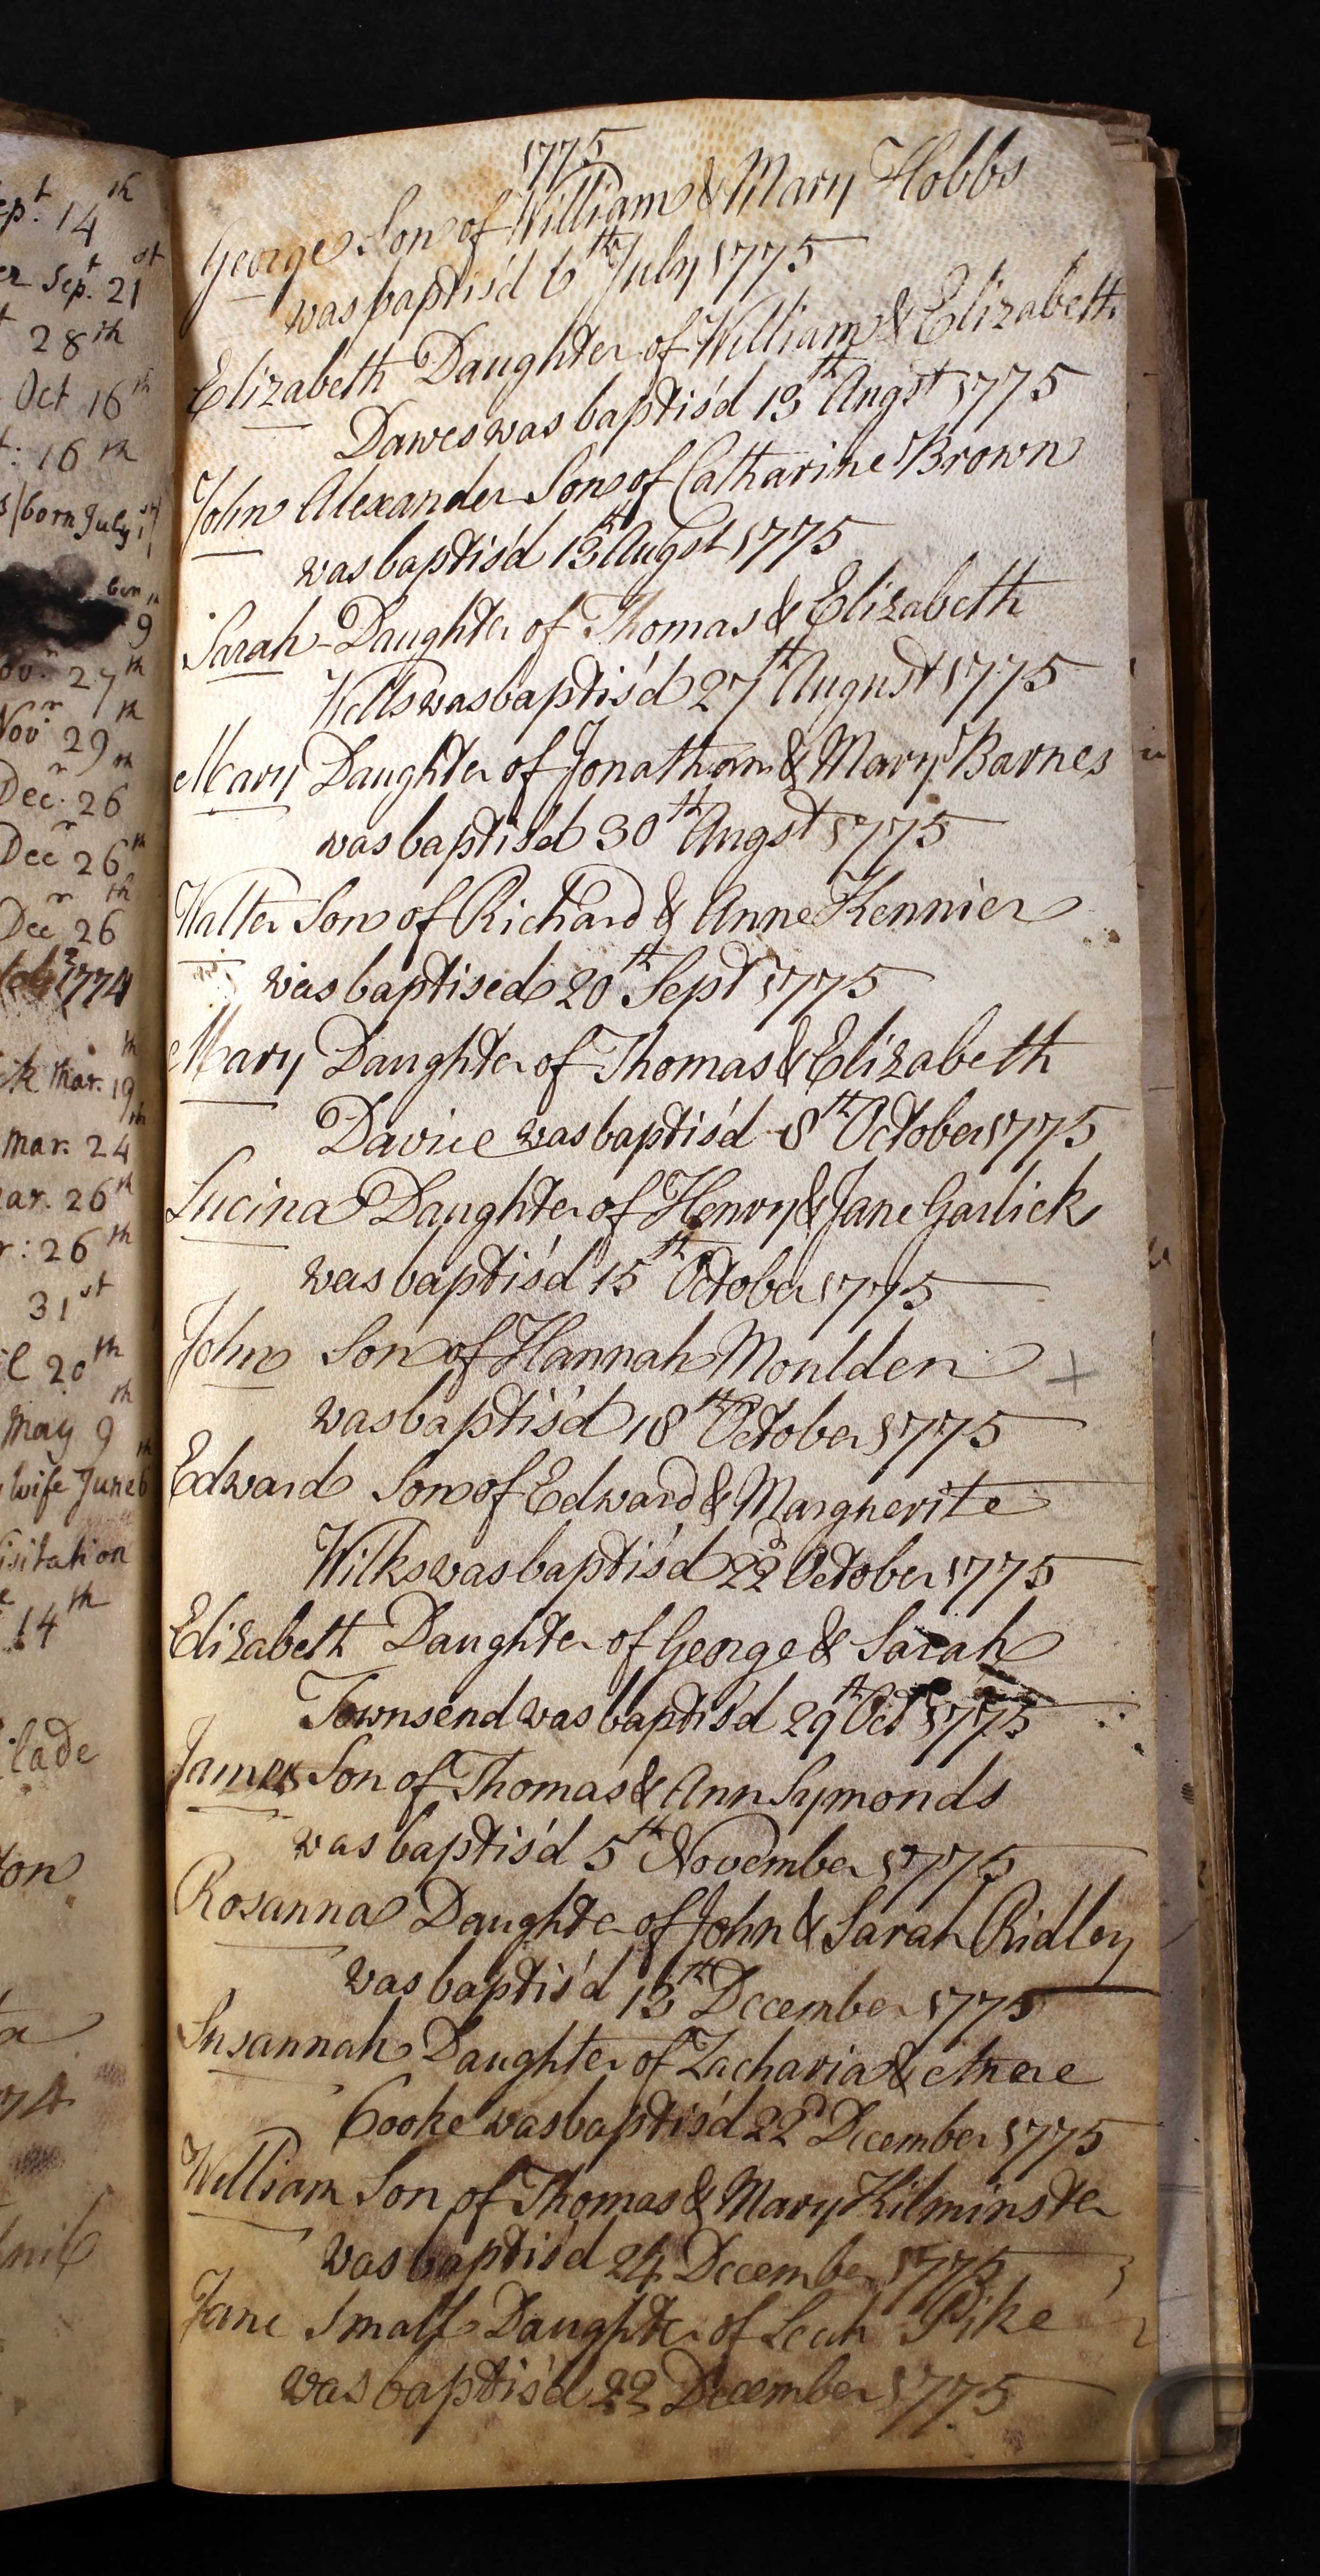 ep.t 14th
er Sep.t 21st
t 28th
Oct 16th
t: 16th
s/born July 1st
born
9
ov.r 27th
Nov.r 29th
Dec.r 26
Dec.r 26th
Dec.r 26th
1774
ck Mar. 19th
Mar. 24th
ar. 26th
r: 26th
31st
il 20th
May 9th
wife June 6th
isitation
14th
lade
ton
1775
George Son of William & Mary Hobbs
was baptis'd 6th July 1775
Elizabeth Daughter of William & Elizabeth
Dawes was baptis'd 13th Augst 1775
John Alexander Son of Catharine Brown
was baptis'd 13th Augst 1775
Sarah Daughter of Thomas & Elizabeth
Wells was baptis'd 27th August 1775
Mary Daughter of Jonathan & Mary Barnes
was baptis'd 30th Augst 1775
Walter Son of Richard & Anne Kennier
was baptised 20th Sept 1775
Mary Daughter of Thomas & Elizabeth
Davice was baptis'd 8th October 1775
Lucina Daughter of Henry & Jane Garlick
was baptis'd 15th October 1775
John Son of Hannah Moulden +
was baptis'd 18th October 1775
Edward Son of Edward & Marguerite
Wilks was baptis'd 22d October 1775
Elizabeth Daughter of George & Sarah
Townsend was baptis'd 29th Oct 1775
James Son of Thomas & Ann Symonds
was baptis'd 5th November 1775
Rosanna Daughter of John & Sarah Ridley
was baptis'd 13th December 1775
Susannah Daughter of Zacharia &
Cooke was baptis'd 22d December 1775
William Son of Thomas & Mary Kilminster
was baptis'd 24 December 1775
Jane Small Daughter of Leah Pike
was baptis'd 22 December 1775